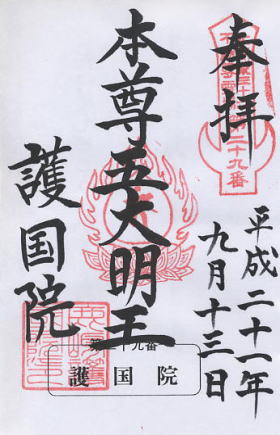 奉拝
平成二十一年
九月十三日
本尊五大明王
護国院
第二十九番
護国院